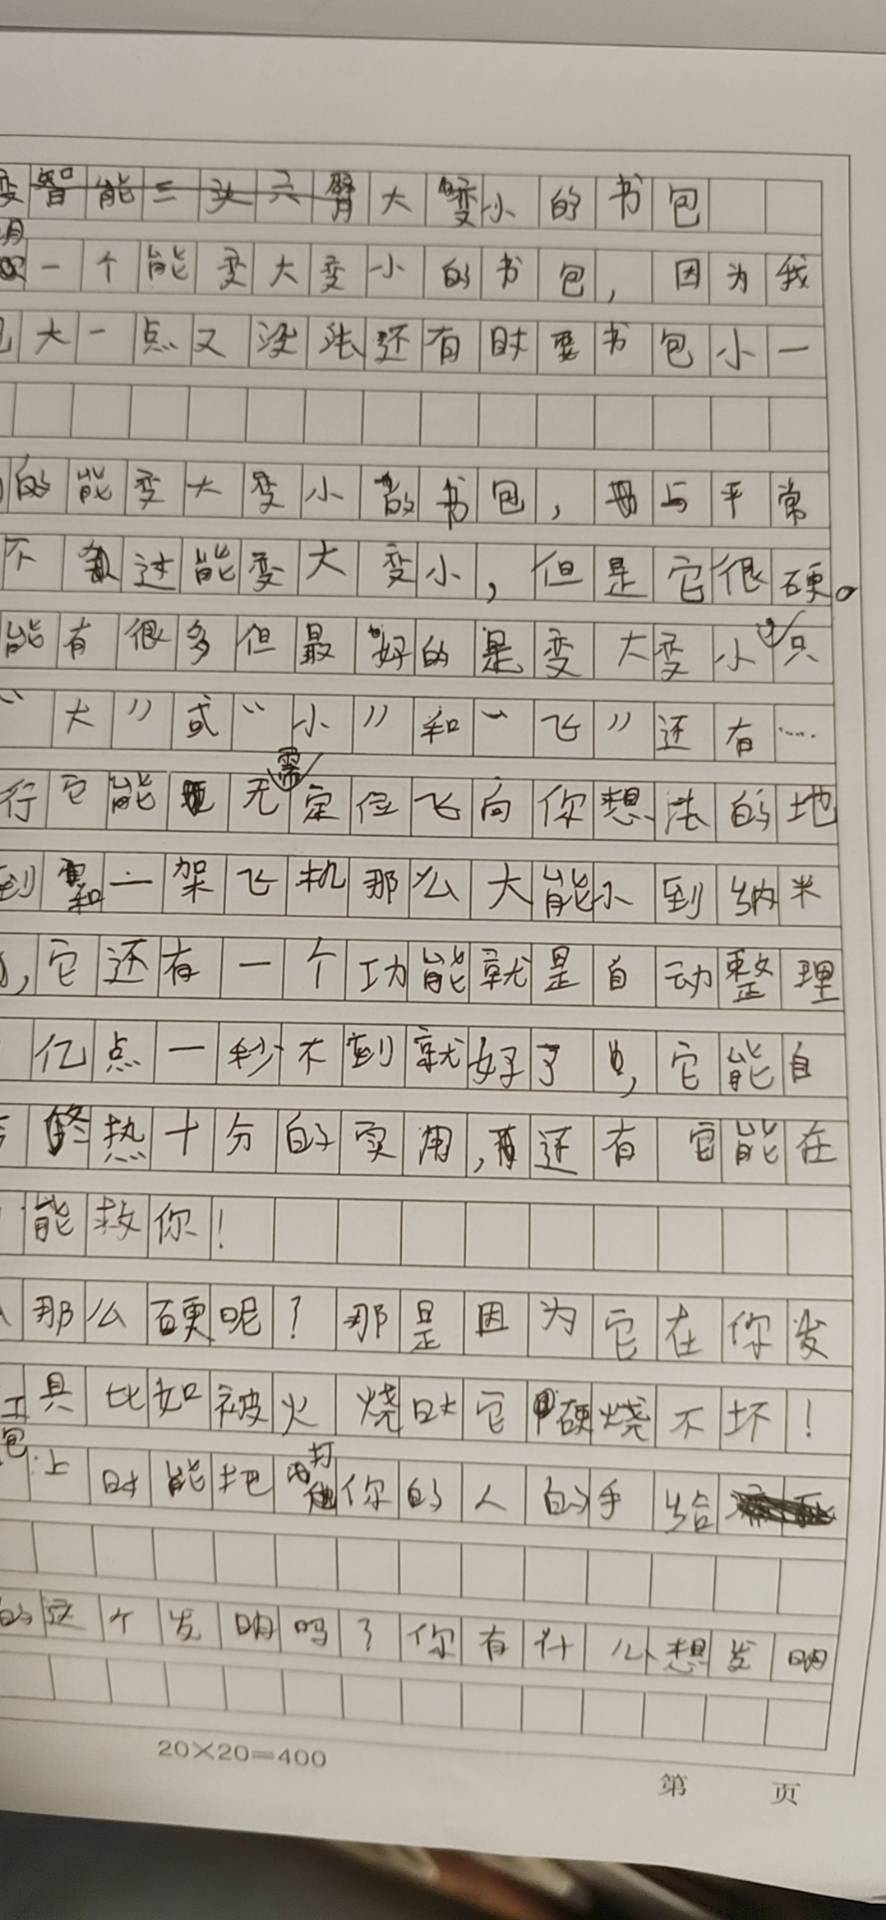 变大变小的书包
一个能变大变小的书包，因为我
大一点又没法还有时要书包小一
的能变大变小的书包，与平常
不过能变大变小，但是它很硬。
能有很多但最好的是变大变小只
“大”或“小”和“飞”还有……
行它能无需定位飞向你想法的地
到和一架飞机那么大能小到纳米
，它还有一个功能就是自动整理
亿点一秒不到就好了，它能自
热十分的实用，还有它能在
能救你！
那么硬呢？那是因为它在你发
工具比如被火烧时它硬烧不坏！
包上时能把打你的人的手给
的这个发明吗？你有什么想发明
20×20=400
第 页